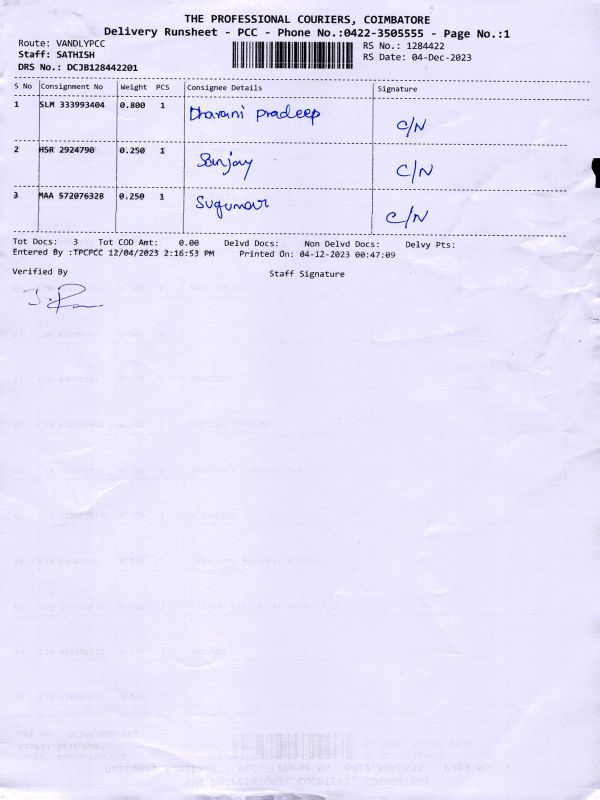 THE PROFESSIONAL COURIERS, COIMBATORE
Delivery Runsheet - PCC - Phone No.:0422-3505555 - Page No.:1
Route: VANDLYPCC
RS No.: 1284422
Staff: SATHISH
RS Date: 04-Dec-2023
DRS No.: DCJB128442201
S No Consignment No Weight PCS Consignee Details Signature
1 SLM 333993404 0.800 1 Dharani Pradeep C/N
2 HSR 2924790 0.250 1 Sanjay C/N
3 MAA 572076328 0.250 1 Sugumar C/N
Tot Docs: 3 Tot COD Amt: 0.00 Delvd Docs: Non Delvd Docs: Delvy Pts:
Entered By :TPCPCC 12/04/2023 2:16:53 PM Printed On: 04-12-2023 00:47:09
Verified By Staff Signature